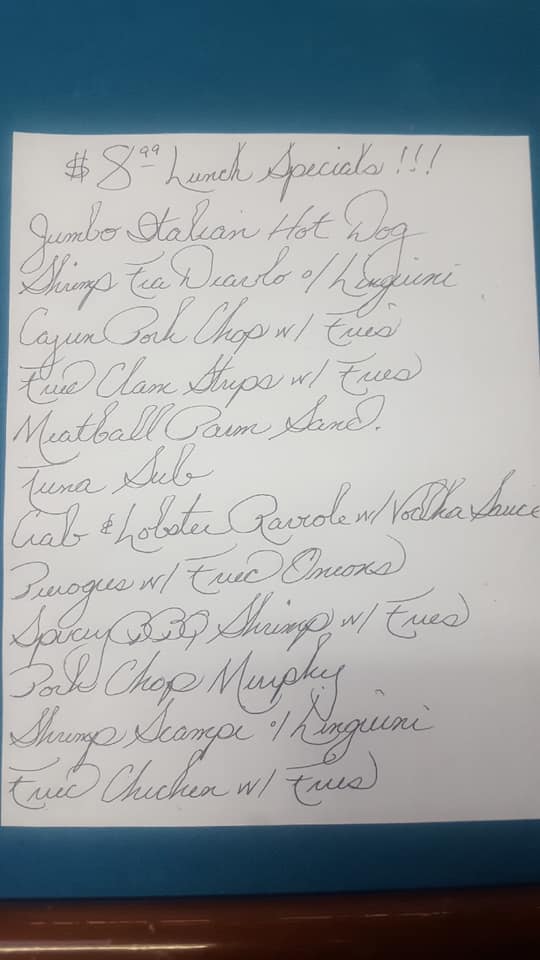 $8.99 Lunch Specials!!!
Jumbo Italian Hot Dog
Shrimp Fra Diavlo o/ Linguini
Cajun Pork Chop w/ Fries
Fried Clam Strips w/ Fries
Meatball Parm Sand.
Tuna Sub
Crab & Lobster Raviole w/ Vodka Sauce
Pierogies w/ Fried Onions
Spicy BBQ Shrimp w/ Fries
Pork Chop Murphy
Shrimp Scampi o/ Linguini
Fried Chicken w/ Fries